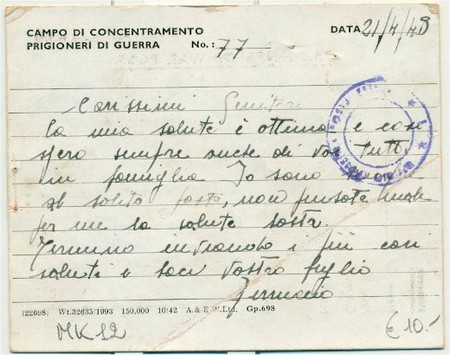 CAMPO DI CONCENTRAMENTO
PRIGIONERI DI GUERRA No.: 77
DATA 21/4/43
Carissimi Genitori
la mia salute è ottima e così
spero sempre anche di voi tutti
in famiglia. Io sono
al solito posto, non pensate male
per me la salute
Termino inviandovi i più cari
saluti e baci vostro figlio
(22698) Wt.32635/1993 150,000 10/42 A. & E.W.Ltd. Gp.698
MK 12
€ 10.-